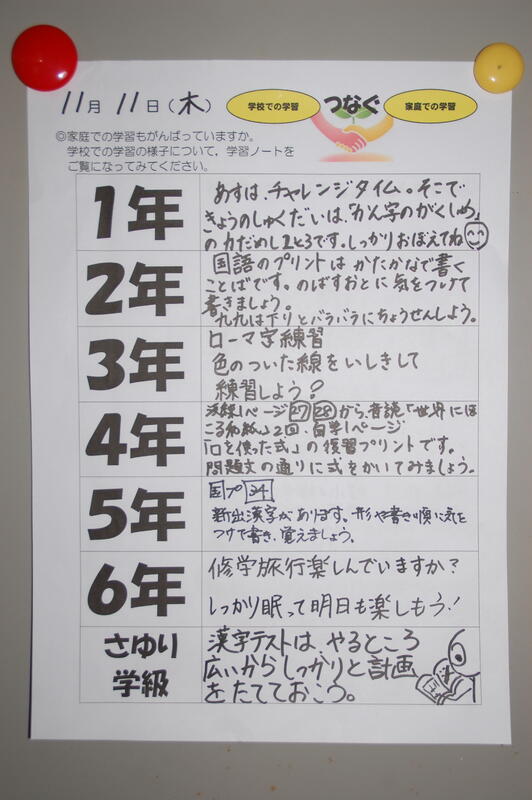 11月 11日（木）
学校での学習 つなぐ 家庭での学習
◎家庭での学習もがんばっていますか。
学校での学習の様子について，学習ノートを
ご覧になってみてください。
1年
あすは、チャレンジタイム。そこで
きょうのしゅくだいは、「かん字のがくしゅう」
の力だめし1と3です。しっかりおぼえてね
2年
国語のプリントは かたかなで書く
ことばです。のばすおとに気をつけて
書きましょう。
九九は下りとバラバラにちょうせんしよう。
3年
ローマ字練習
色のついた線をいしきして
練習しよう？
4年
1ページ 27 28 から、音読「世界にほ
こる和紙」2回、自学1ページ
「□を使った式」の復習プリントです。
問題文の通りに式をかいてみましょう。
5年
国プ 34
新出漢字があります。形や書き順に気を
つけて書き、覚えましょう。
6年
修学旅行楽しんでいますか？
しっかり眠って明日も楽しもう！
さゆり
学級
漢字テストは、やるところ
広いからしっかりと計画
をたてておこう。